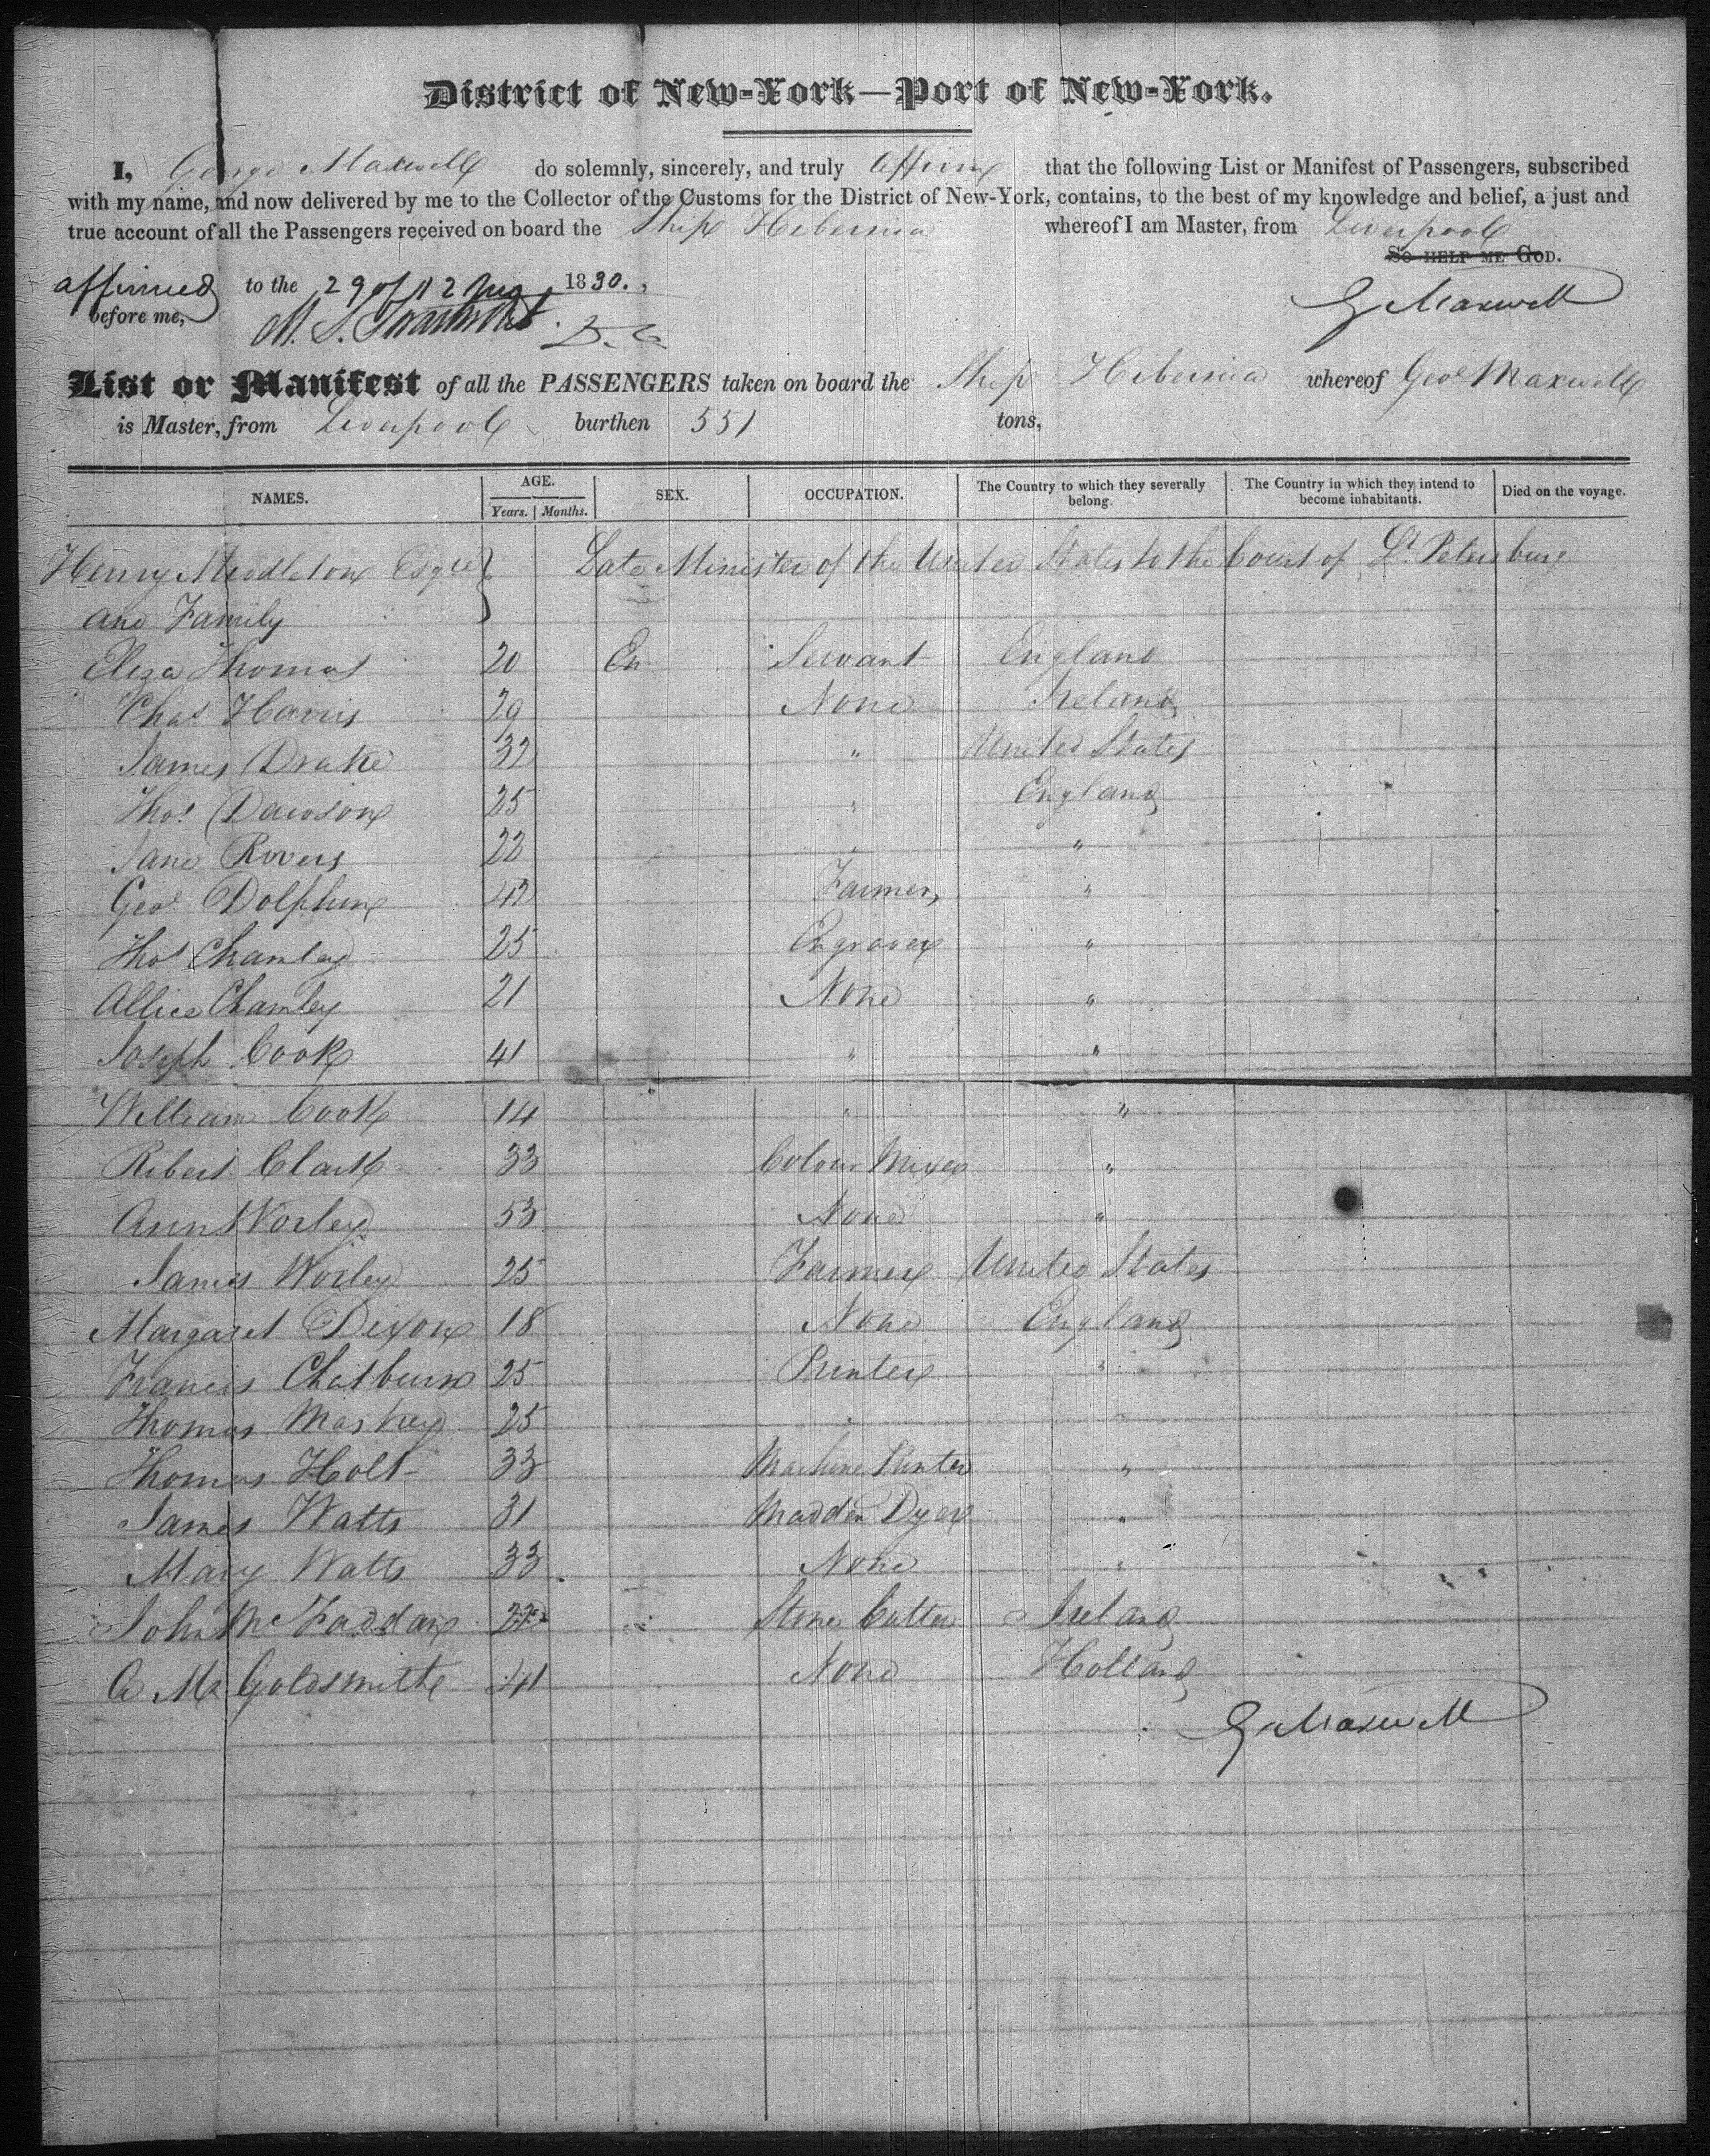 District of New-York—Port of New-York.
I, George Maxwell do solemnly, sincerely, and truly affirm that the following List or Manifest of Passengers, subscribed
with my name, and now delivered by me to the Collector of the Customs for the District of New-York, contains, to the best of my knowledge and belief, a just and
true account of all the Passengers received on board the Ship Hibernia whereof I am Master, from Liverpool
So help me God.
affirmed to the 29 of 12 1830.
before me,
G Maxwell
List or Manifest of all the PASSENGERS taken on board the Ship Hibernia whereof Geo. Maxwell
is Master, from Liverpool burthen 551 tons,
NAMES. AGE. Years. Months. SEX. OCCUPATION. The Country to which they severally belong. The Country in which they intend to become inhabitants. Died on the voyage.
Henry Middleton Esqre Late Minister of the United States to the Court of St. Petersburg
and Family
Eliza Thomas 20 Servant England
Chas. Harris 29 None Ireland
James Drake 32 " United States
Thos. Dawson 25 " England
Jane Rovers 22 " "
Geo. Dolphin 42 Farmer "
Thos. Chamley 25 Engraver "
Allice Chamley 21 None "
Joseph Cook 41 " "
William Cook 14 " "
Robert Clark 33 Colour Mixer "
Ann Worley 53 None "
James Worley 25 Farmer United States
Margaret Dixon 18 None England
Francis Chatburn 25 Printer "
Thomas 25 " "
Thomas Holt 33 Machine Printer "
James Watts 31 Madder Dyer "
Mary Watts 33 None "
John McFaddan 22 Stone Cutter Ireland
A M Goldsmith 41 None Holland
G Maxwell